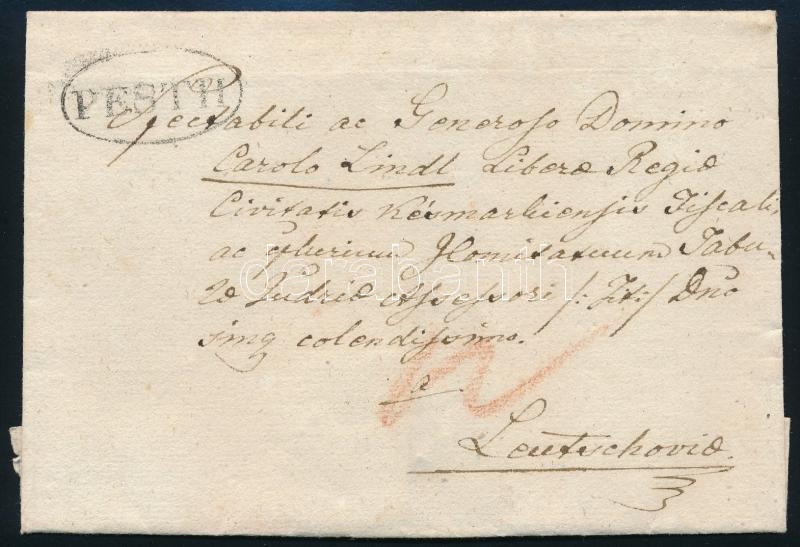 PESTH
Spectabili ac Generoso Domino
Carolo Lindl Liberæ Regiæ
Civitatis Késmarkiensis Fiscali
ac plurium Comitatuum Tabu-
læ Judriæ Assessori /: Tit: / Dno
colendissimo.
a
Leutschoviæ.
darabanth